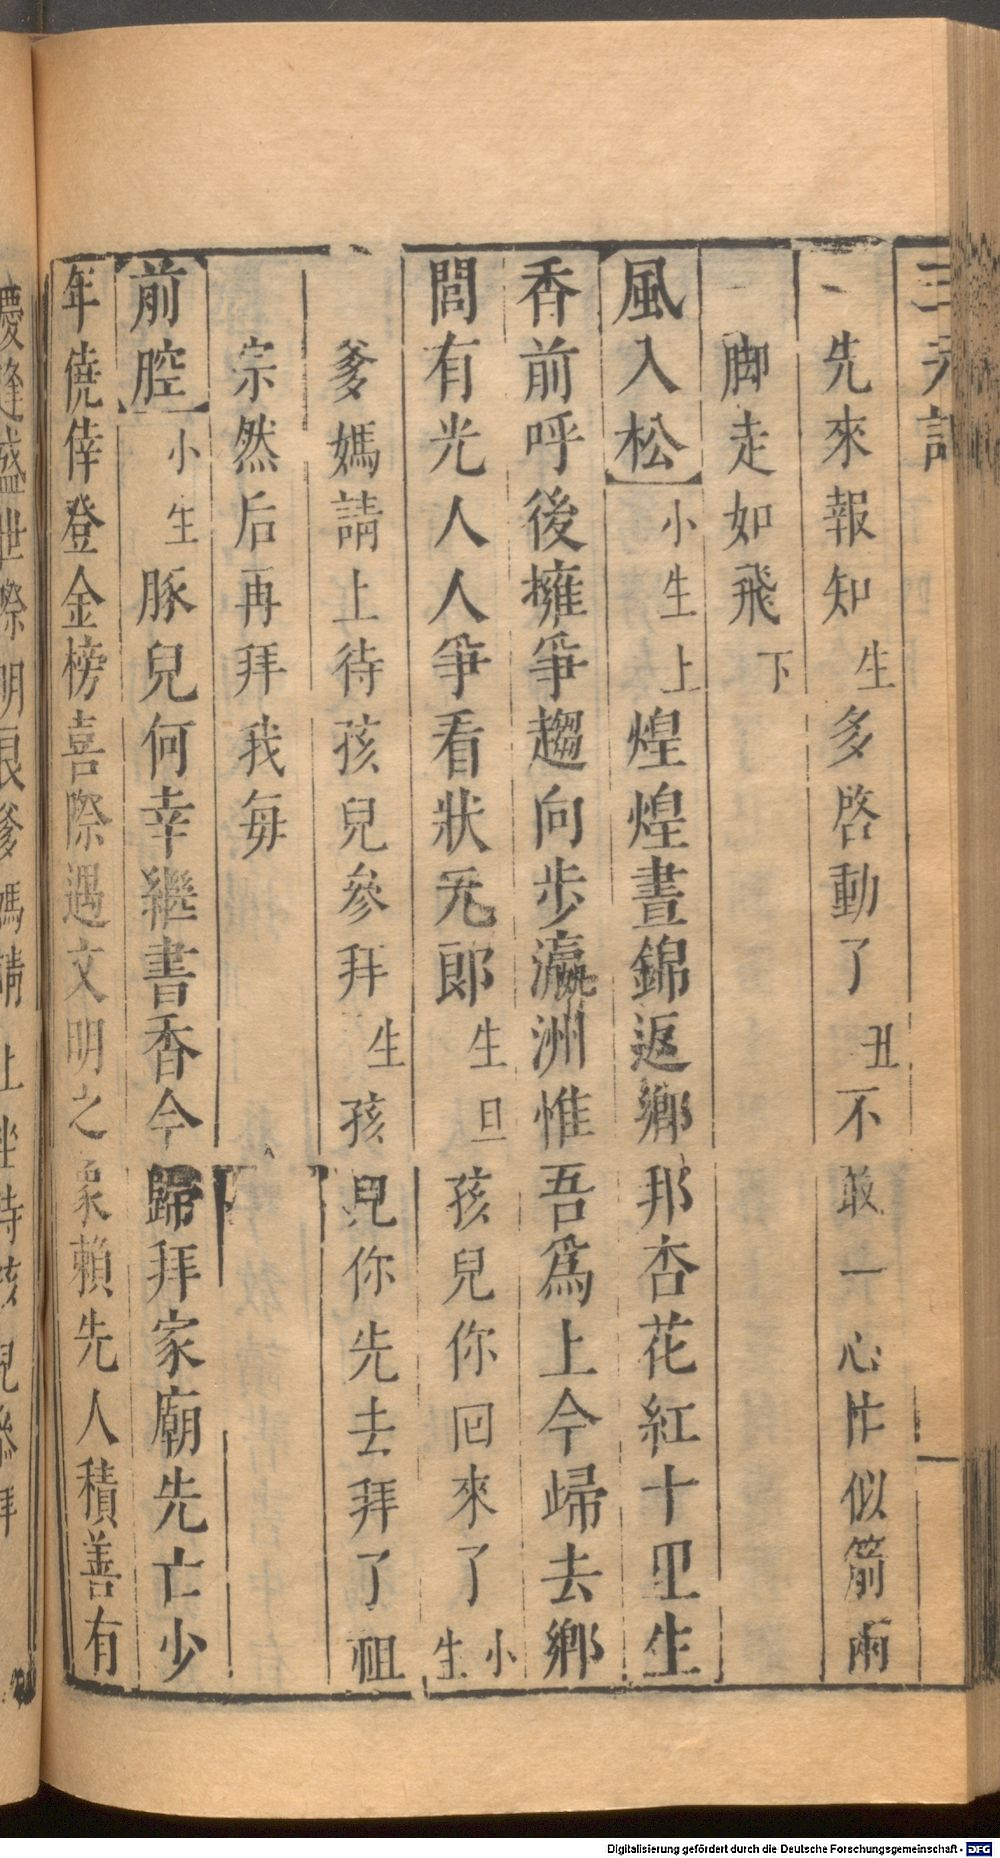 先來報知生多啓動了丑不敢一心忙似箭兩
脚走如飛下
風入松小生上煌煌晝錦返鄉邦杏花紅十里生
香前呼後擁爭趨向步瀛洲惟吾爲上今歸去鄉
閭有光人人爭看狀元郎生旦孩兒你回來了小生
爹媽請上待孩兒參拜生孩兒你先去拜了祖
宗然后再拜我每
前腔小生豚兒何幸繼書香今歸拜家廟先亡少
年僥倖登金榜喜際遇文明之象賴先人積善有
慶逢盛世際明良爹媽請上坐待孩兒參拜
Digitalisierung gefördert durch die Deutsche Forschungsgemeinschaft - DFG